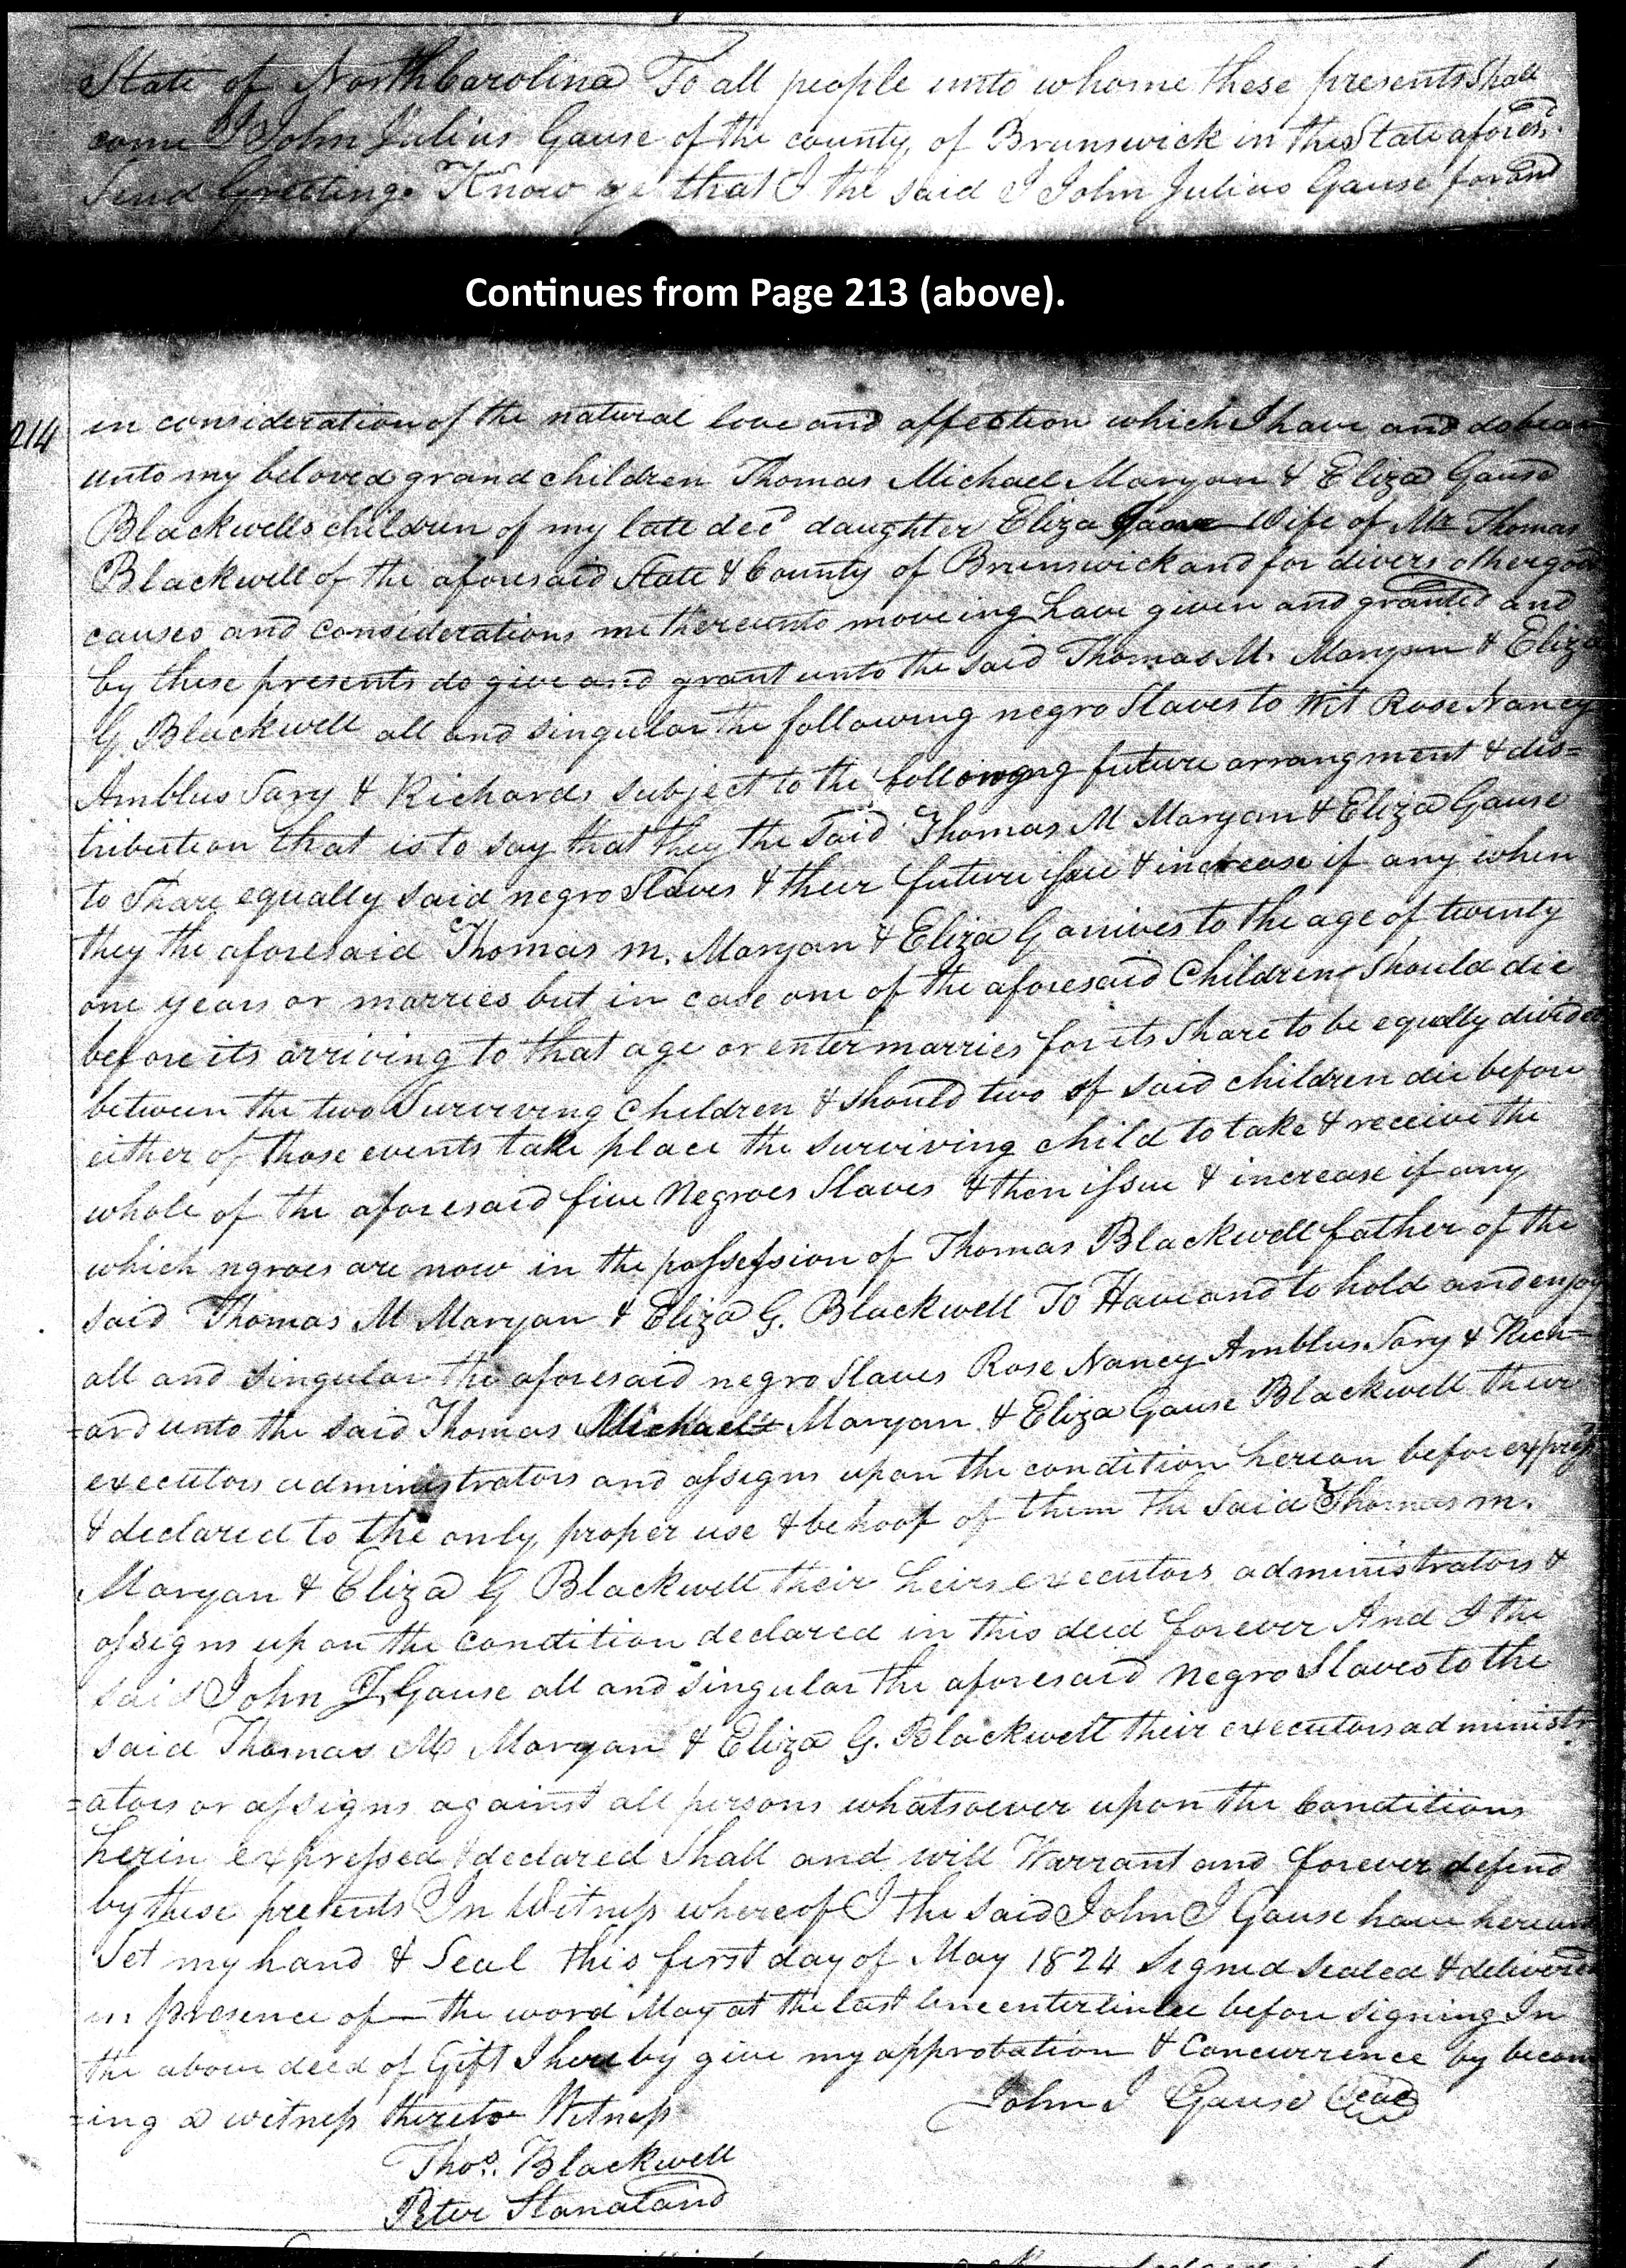 State of North Carolina To all people unto whome these presents Shall
come I John Julius Gause of the county of Brunswick in the State aforesd.
Send Greeting. Know ye that I the said I John Julius Gause for and
Continues from Page 213 (above).
214
in consideration of the natural love and affection which I have and do bear
unto my beloved grand children Thomas Michael Maryan & Eliza Gause
Blackwells children of my late decd daughter Eliza Wife of Mr Thomas
Blackwell of the aforesaid State & County of Brunswick and for divers other good
causes and considerations me thereunto moveing have given and granted and
by these presents do give and grant unto the said Thomas M. Maryan & Eliza
G. Blackwell all and singular the following negro Slaves to Wit Rose Nancy
Amblus Sary & Richard, subject to the following future arrangment & dis=
tribution that is to say that they the said Thomas M Maryan & Eliza Gause
to Share equally said negro Slaves & their future issue & increase if any when
they the aforesaid Thomas m. Maryan & Eliza G arrives to the age of twenty
one years or marries but in case one of the aforesaid Children Should die
before its arriving to that age or enter marries for its Share to be equally divided
between the two Surviving Children & Should two of said children die before
either of those events take place the surviving child to take & receive the
whole of the aforesaid five Negroes Slaves & then issue & increase if any
which ngroes are now in the possession of Thomas Blackwell father of the
said Thomas M Maryan & Eliza G. Blackwell To Have and to hold and enjoy
all and singular the aforesaid negro Slaves Rose Nancy Amblus Sary & Rich=
=ard unto the said Thomas Michael Maryan & Eliza Gause Blackwell their
executors administrators and assigns upon the condition herean before express
& declared to the only proper use & behoof of them the said Thomas m.
Maryan & Eliza G Blackwell their heirs executors administrators &
assigns upon the condition declared in this deed forever And I the
said John J. Gause all and singular the aforesaid negro Slaves to the
said Thomas M Maryan & Eliza G. Blackwell their executors administr
=ators or assigns against all persons whatsoever upon the Conditions
herin expressed & declared Shall and will Warrant and forever defend
by these presents In Witness whereof I the said John J Gause have hereunto
Set my hand & Seal this first day of May 1824 Signed sealed & delivered
in presence of — the word May at the last line enterlinlee before signing In
the above deed of Gift I hereby give my approbation & Concurrence by becom
=ing a witness thereto Witness
John J Gause Seal
Thos. Blackwell
Peter Stanaland